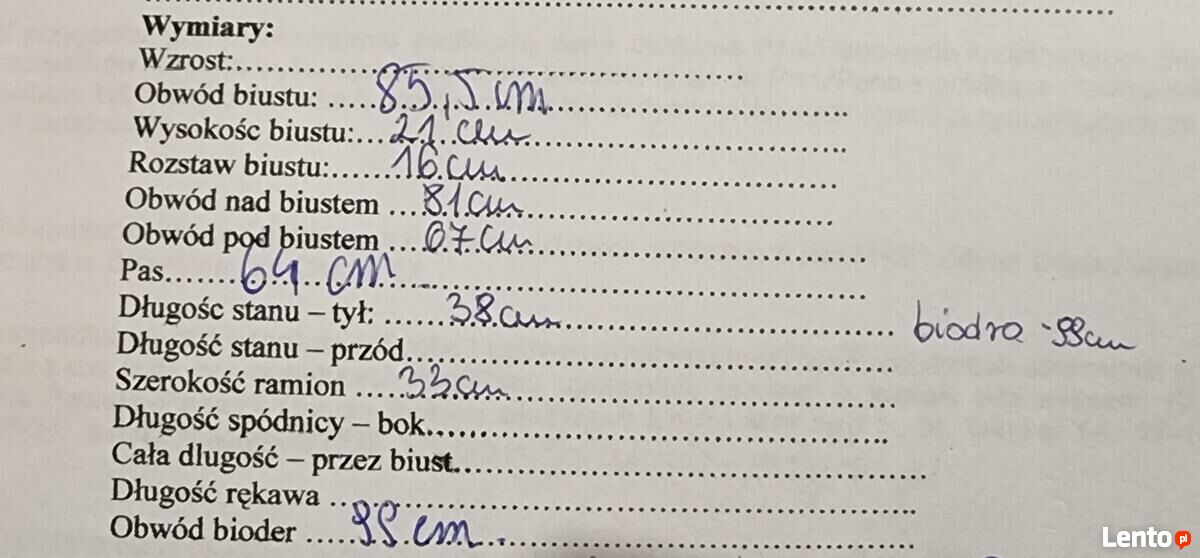 Wymiary:
Wzrost:................................................
Obwód biustu: .....85,5.cm..............................
Wysokośc biustu:...21.cm..............................
Rozstaw biustu:......16.cm..............................
Obwód nad biustem ....81.cm..............................
Obwód pod biustem ....67.cm..............................
Pas.........64..cm..............................
Długośc stanu – tył: ........38.cm.............................. biodra -99cm
Długość stanu – przód..............................
Szerokość ramion .....33.cm..............................
Długość spódnicy – bok..............................
Cała dlugość – przez biust..............................
Długość rękawa ..............................
Obwód bioder .....99.cm..............................
Lento.pl